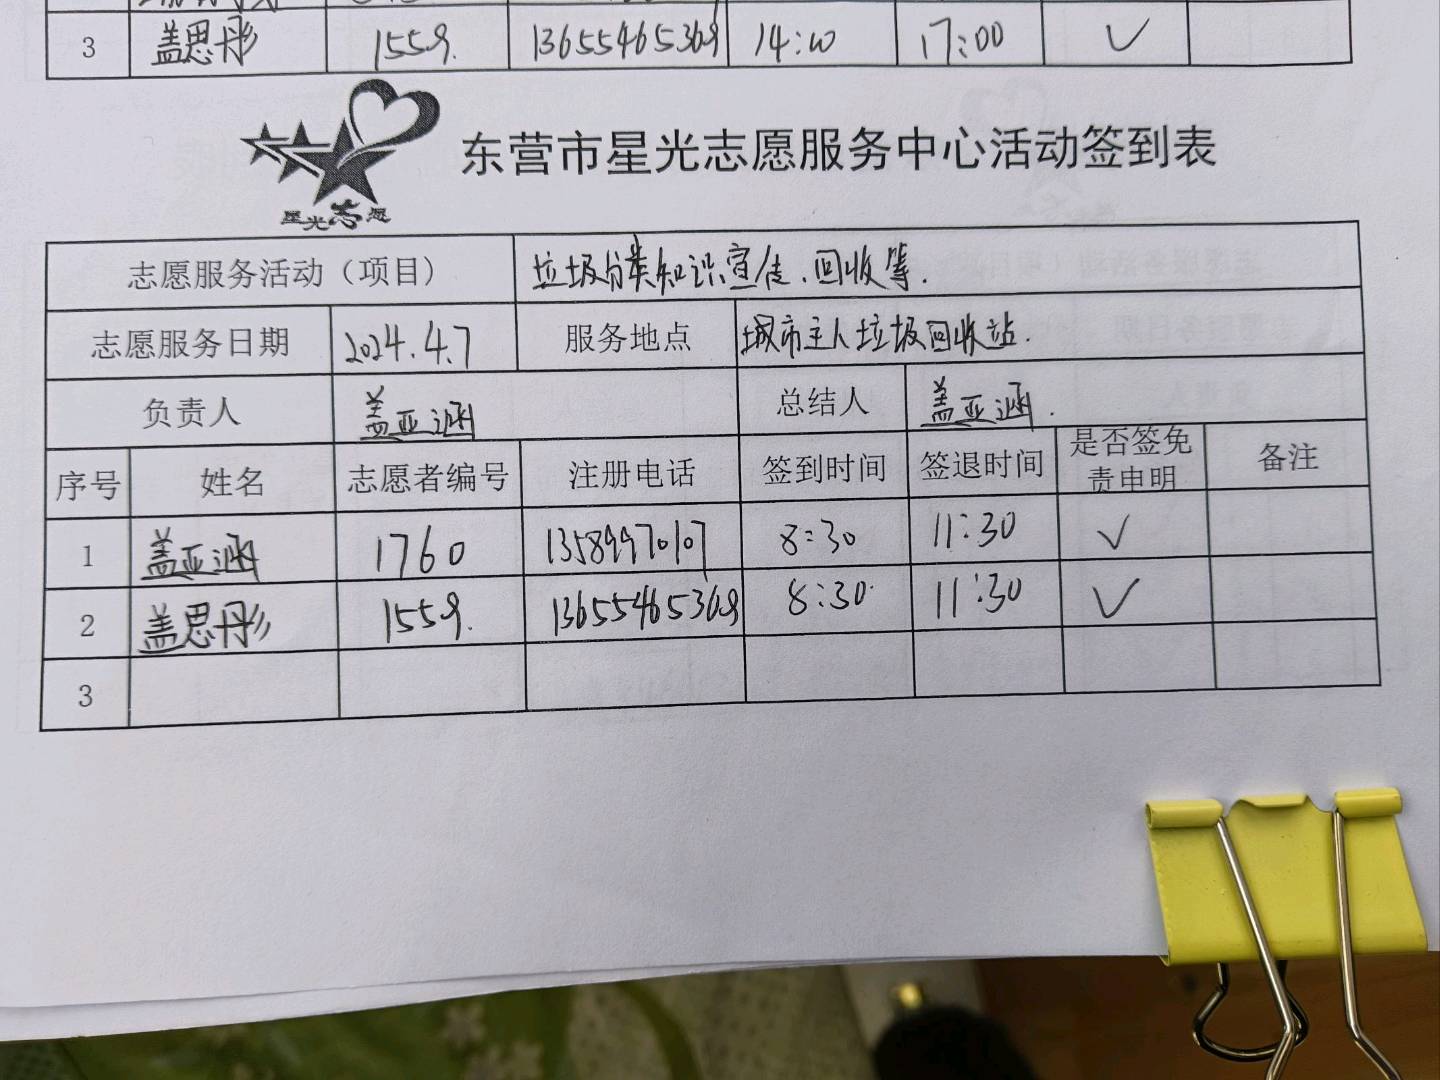 3 盖思彤 1559. 13655465369 14:00 17:00 ✓
星光志愿
东营市星光志愿服务中心活动签到表
志愿服务活动（项目） 垃圾分类知识宣传、回收等.
志愿服务日期 2024.4.7 服务地点 城市主人垃圾回收站.
负责人 盖亚涵 总结人 盖亚涵.
序号 姓名 志愿者编号 注册电话 签到时间 签退时间 是否签免责申明 备注
1 盖亚涵 1760 13589970107 8:30 11:30 ✓
2 盖思彤 1559. 13655465369 8:30 11:30 ✓
3